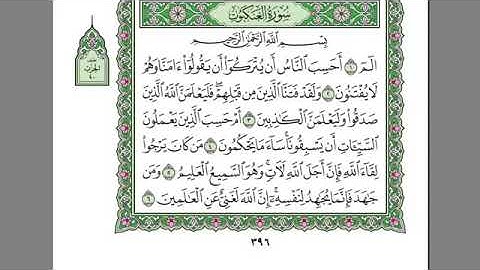 سُورَةُ العَنكَبُوتِ
بِسْمِ اللَّهِ الرَّحْمَٰنِ الرَّحِيمِ
الٓمٓ ۝١ أَحَسِبَ النَّاسُ أَن يُتْرَكُوٓا۟ أَن يَقُولُوٓا۟ ءَامَنَّا وَهُمْ
لَا يُفْتَنُونَ ۝٢ وَلَقَدْ فَتَنَّا الَّذِينَ مِن قَبْلِهِمْ فَلَيَعْلَمَنَّ اللَّهُ الَّذِينَ
صَدَقُوا۟ وَلَيَعْلَمَنَّ الْكَٰذِبِينَ ۝٣ أَمْ حَسِبَ الَّذِينَ يَعْمَلُونَ
السَّيِّـَٔاتِ أَن يَسْبِقُونَا سَآءَ مَا يَحْكُمُونَ ۝٤ مَن كَانَ يَرْجُوا۟
لِقَآءَ اللَّهِ فَإِنَّ أَجَلَ اللَّهِ لَـَٔاتٍ وَهُوَ السَّمِيعُ الْعَلِيمُ ۝٥ وَمَن
جَٰهَدَ فَإِنَّمَا يُجَٰهِدُ لِنَفْسِهِۦٓ إِنَّ اللَّهَ لَغَنِىٌّ عَنِ الْعَٰلَمِينَ ۝٦
٣٩٦